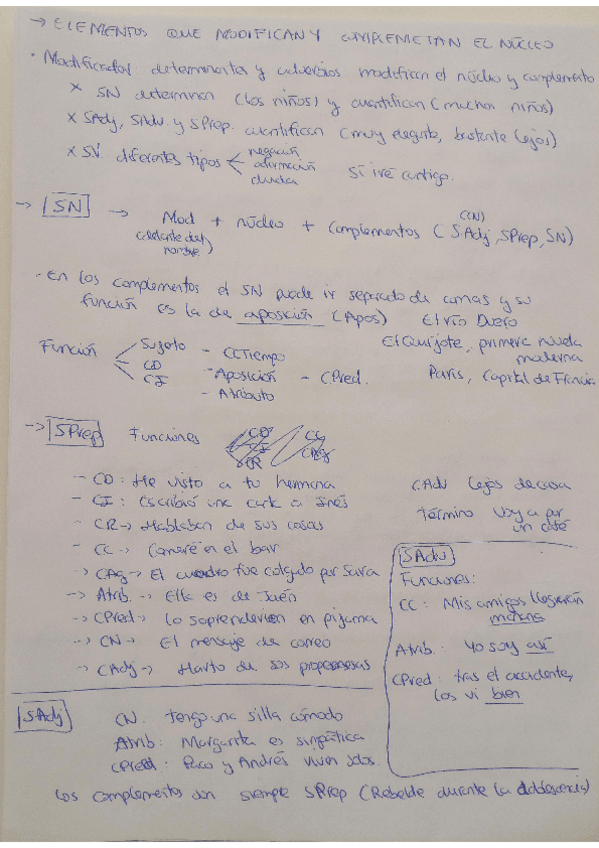 → ELEMENTOS QUE MODIFICAN Y COMPLEMETAN EL NÚCLEO
· Modificador: determinantes y adverbios modifican el núcleo y complemento
x SN determinan (los niños) y cuantifican (muchos niños)
x SAdj, SAdv. y SPrep. cuantifican (muy elegante, bastante lejos)
x SV diferentes tipos
negación
afirmación
duda
Sí iré contigo.
→ SN → Mod + núcleo + complementos (SAdj, SPrep, SN)
(CN)
(delante del nombre)
· En los complementos el SN puede ir separado de comas y su
función es la de aposición (Apos)
El río Duero
El Quijote, primera novela moderna
París, Capital de Francia
Función
Sujeto
CD
CI
- CCTiempo
- Aposición
- Atributo
- CPred.
→ SPrep Funciones
- CD: He visto a tu hermana
- CI: Escribió una carta a Inés
- CR → Hablaban de sus cosas
- CC → Comeré en el bar
→ CAg → El cuadro fue colgado por Sara
→ Atrib. → Ella es de Jaén
→ CPred → Lo sorprendieron en pijama
→ CN → El mensaje de correo
→ CAdj → Harto de sus promesas
CAdv lejos de casa
Término Voy a por un café
SAdv
Funciones:
CC: Mis amigos llegarán mañana
Atrib: Yo soy así
CPred: tras el accidente, los vi bien
SAdj
CN. Tengo una silla cómodo
Atrib: Margarita es simpática
CPred: Paco y Andrés viven solos.
Los complementos son siempre SPrep (Rebelde durante la adolescencia)